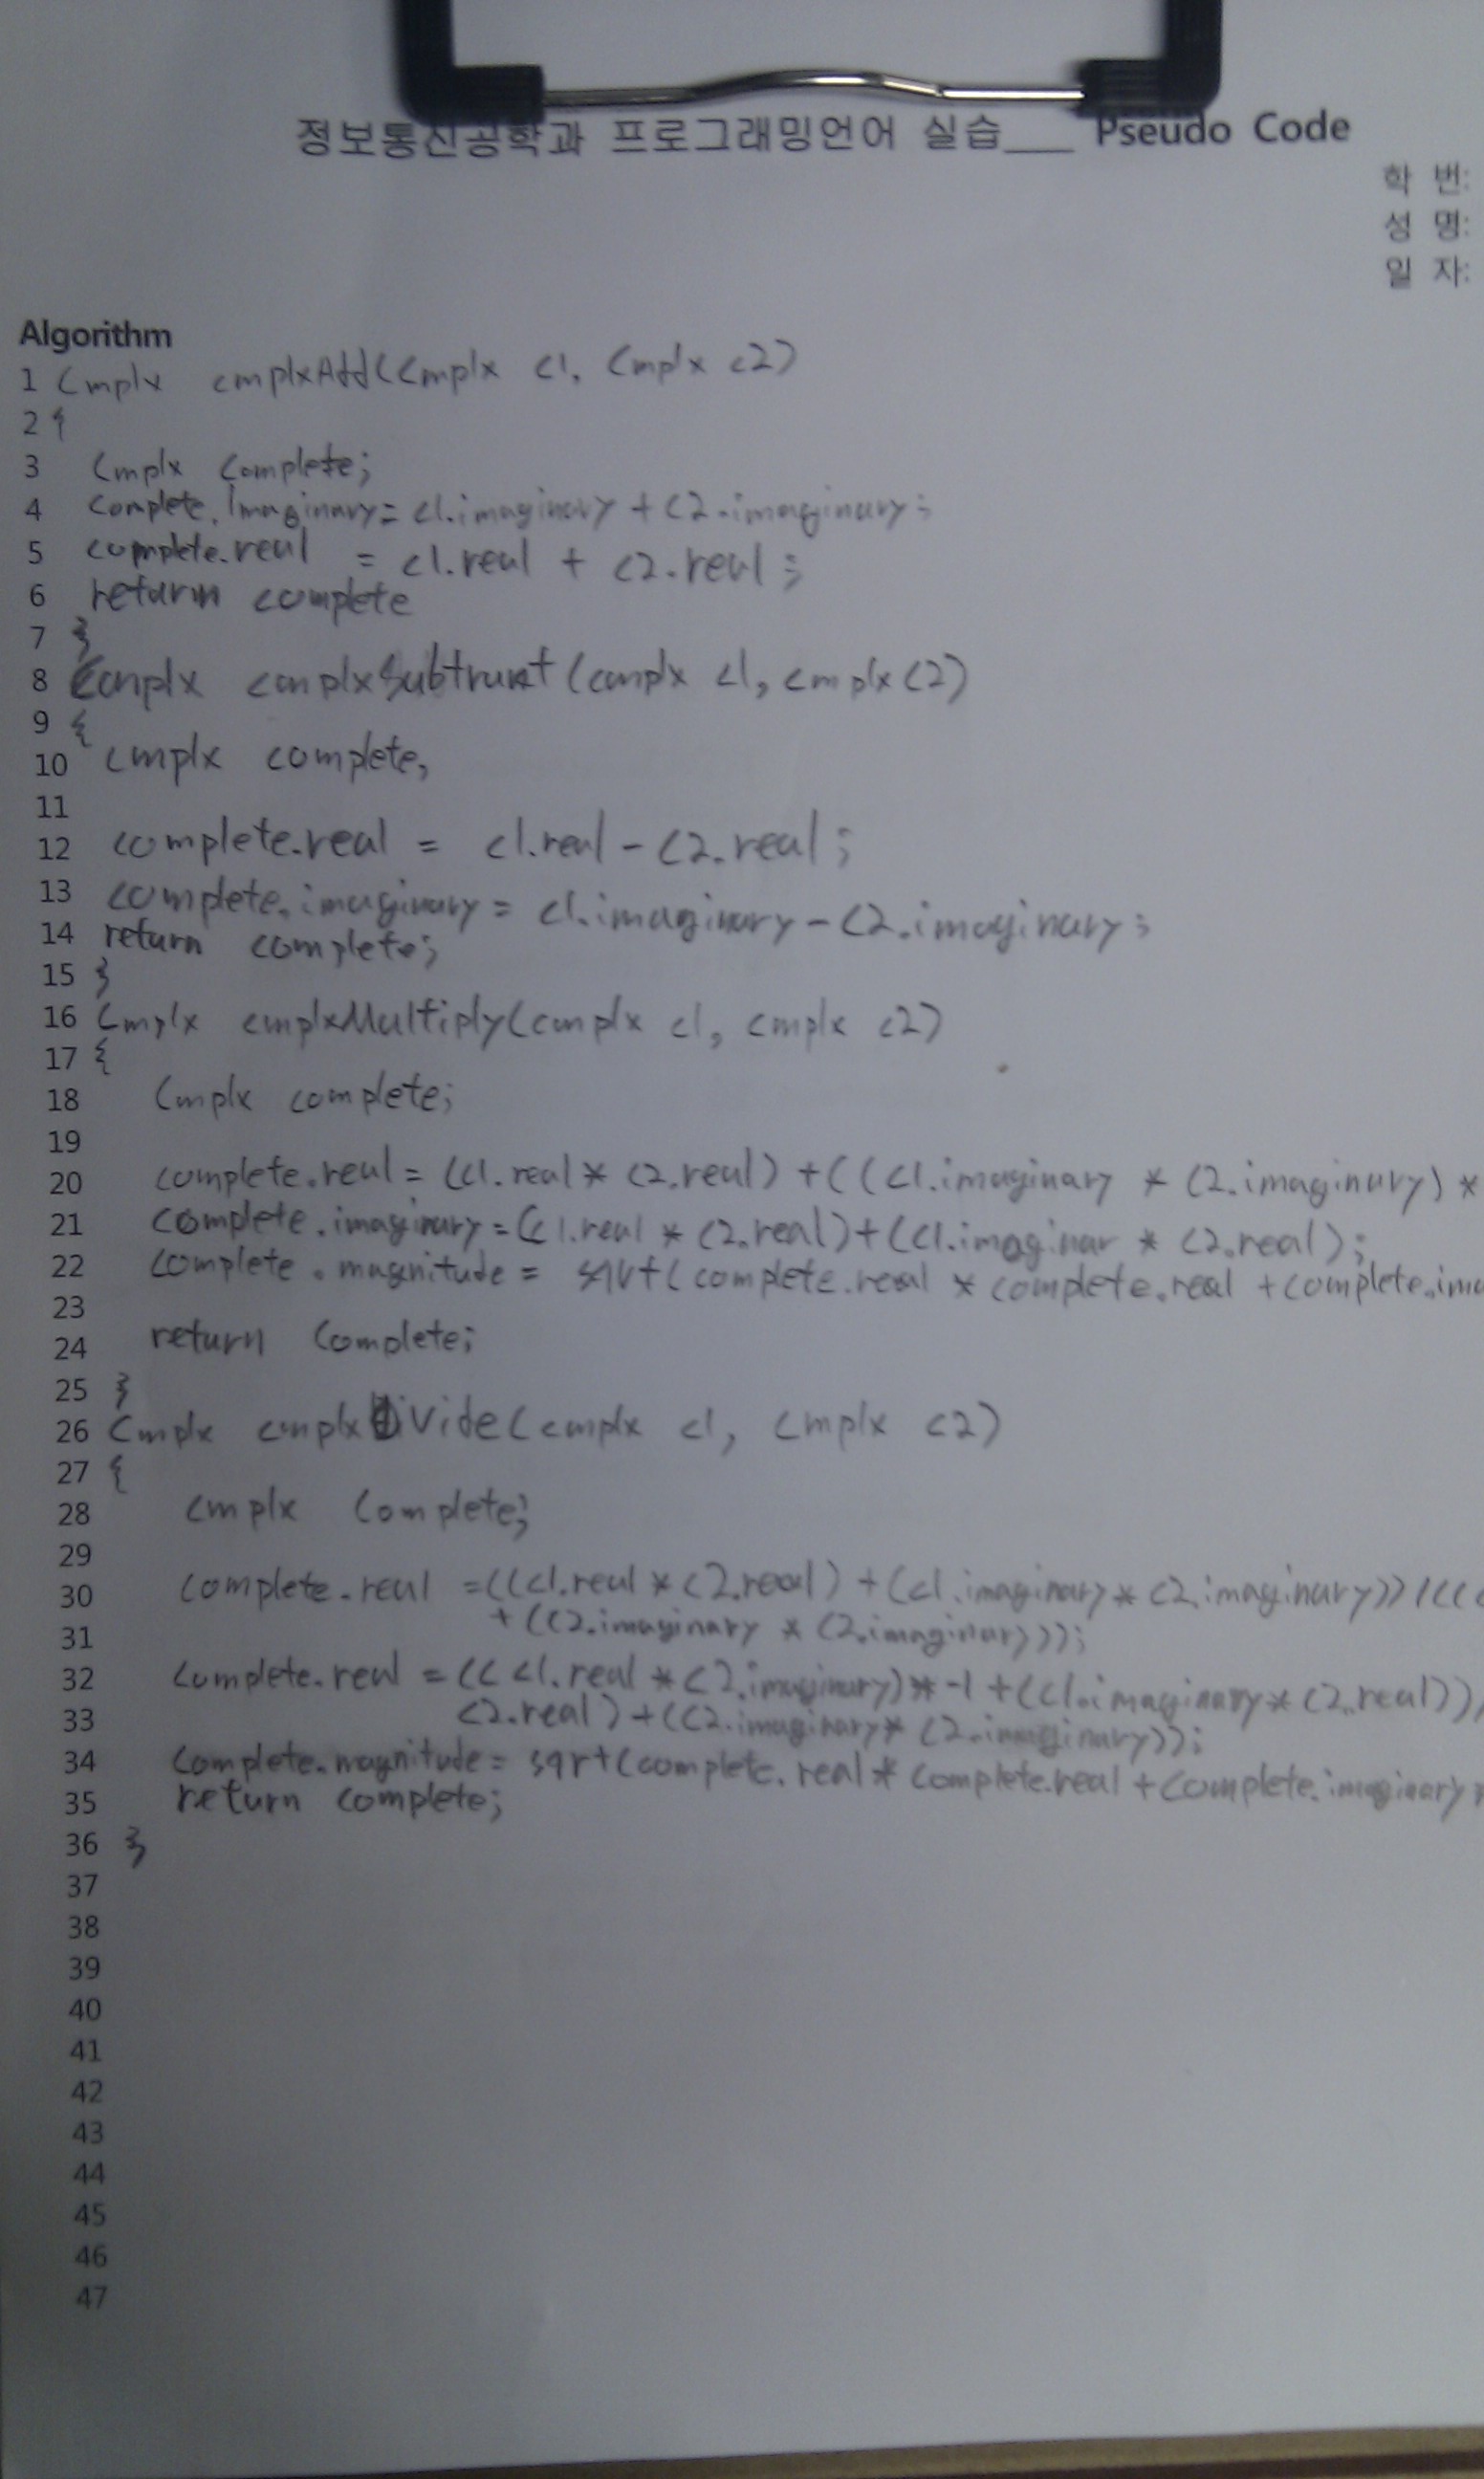 정보통신공학과 프로그래밍언어 실습___ Pseudo Code
학 번:
성 명:
일 자:
Algorithm
1 Cmplx cmplxAdd(Cmplx c1, Cmplx c2)
2 {
3 Cmplx Complete;
4 Complete.Imaginary= c1.imaginary + C2.imaginary;
5 complete.real = c1.real + c2.real;
6 return complete
7 }
8 Cmplx cmplxSubtract(cmplx c1, cmplx c2)
9 {
10 cmplx complete,
11
12 complete.real = c1.real - c2.real;
13 complete.imaginary = c1.imaginary - c2.imaginary;
14 return complete;
15 }
16 Cmplx cmplxMultiply(cmplx c1, cmplx c2)
17 {
18 Cmplx complete;
19
20 complete.real = (c1.real * c2.real) + ((c1.imaginary * c2.imaginary) *
21 complete.imaginary = (c1.real * c2.real) + (c1.imaginar * c2.real);
22 complete.magnitude = sqrt(complete.real * complete.real + complete.ima
23
24 return Complete;
25 }
26 Cmplx cmplxDivide(cmplx c1, cmplx c2)
27 {
28 cmplx Complete;
29
30 complete.real = ((c1.real * c2.real) + (c1.imaginary * c2.imaginary)) / ((c
31 + (c2.imaginary * c2.imaginary)));
32 complete.real = ((c1.real * c2.imaginary) * -1 + ((c1.imaginary * c2.real)) /
33 c2.real) + ((c2.imaginary * c2.imaginary));
34 complete.magnitude = sqrt(complete.real * complete.real + complete.imaginary *
35 return complete;
36 }
37
38
39
40
41
42
43
44
45
46
47